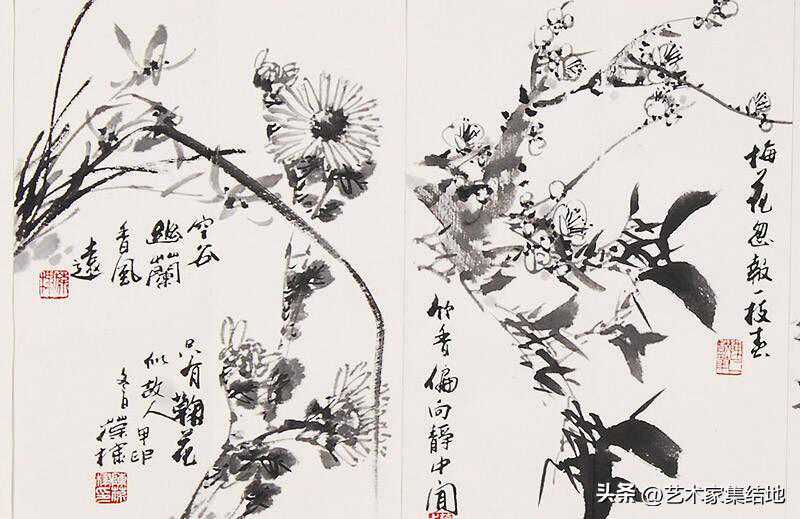 空谷
幽蘭
香風
遠
只有鞠花
似故人甲申
冬日
梅花忽報一枝春
竹香偏向靜中聞
头条 @艺术家集结地